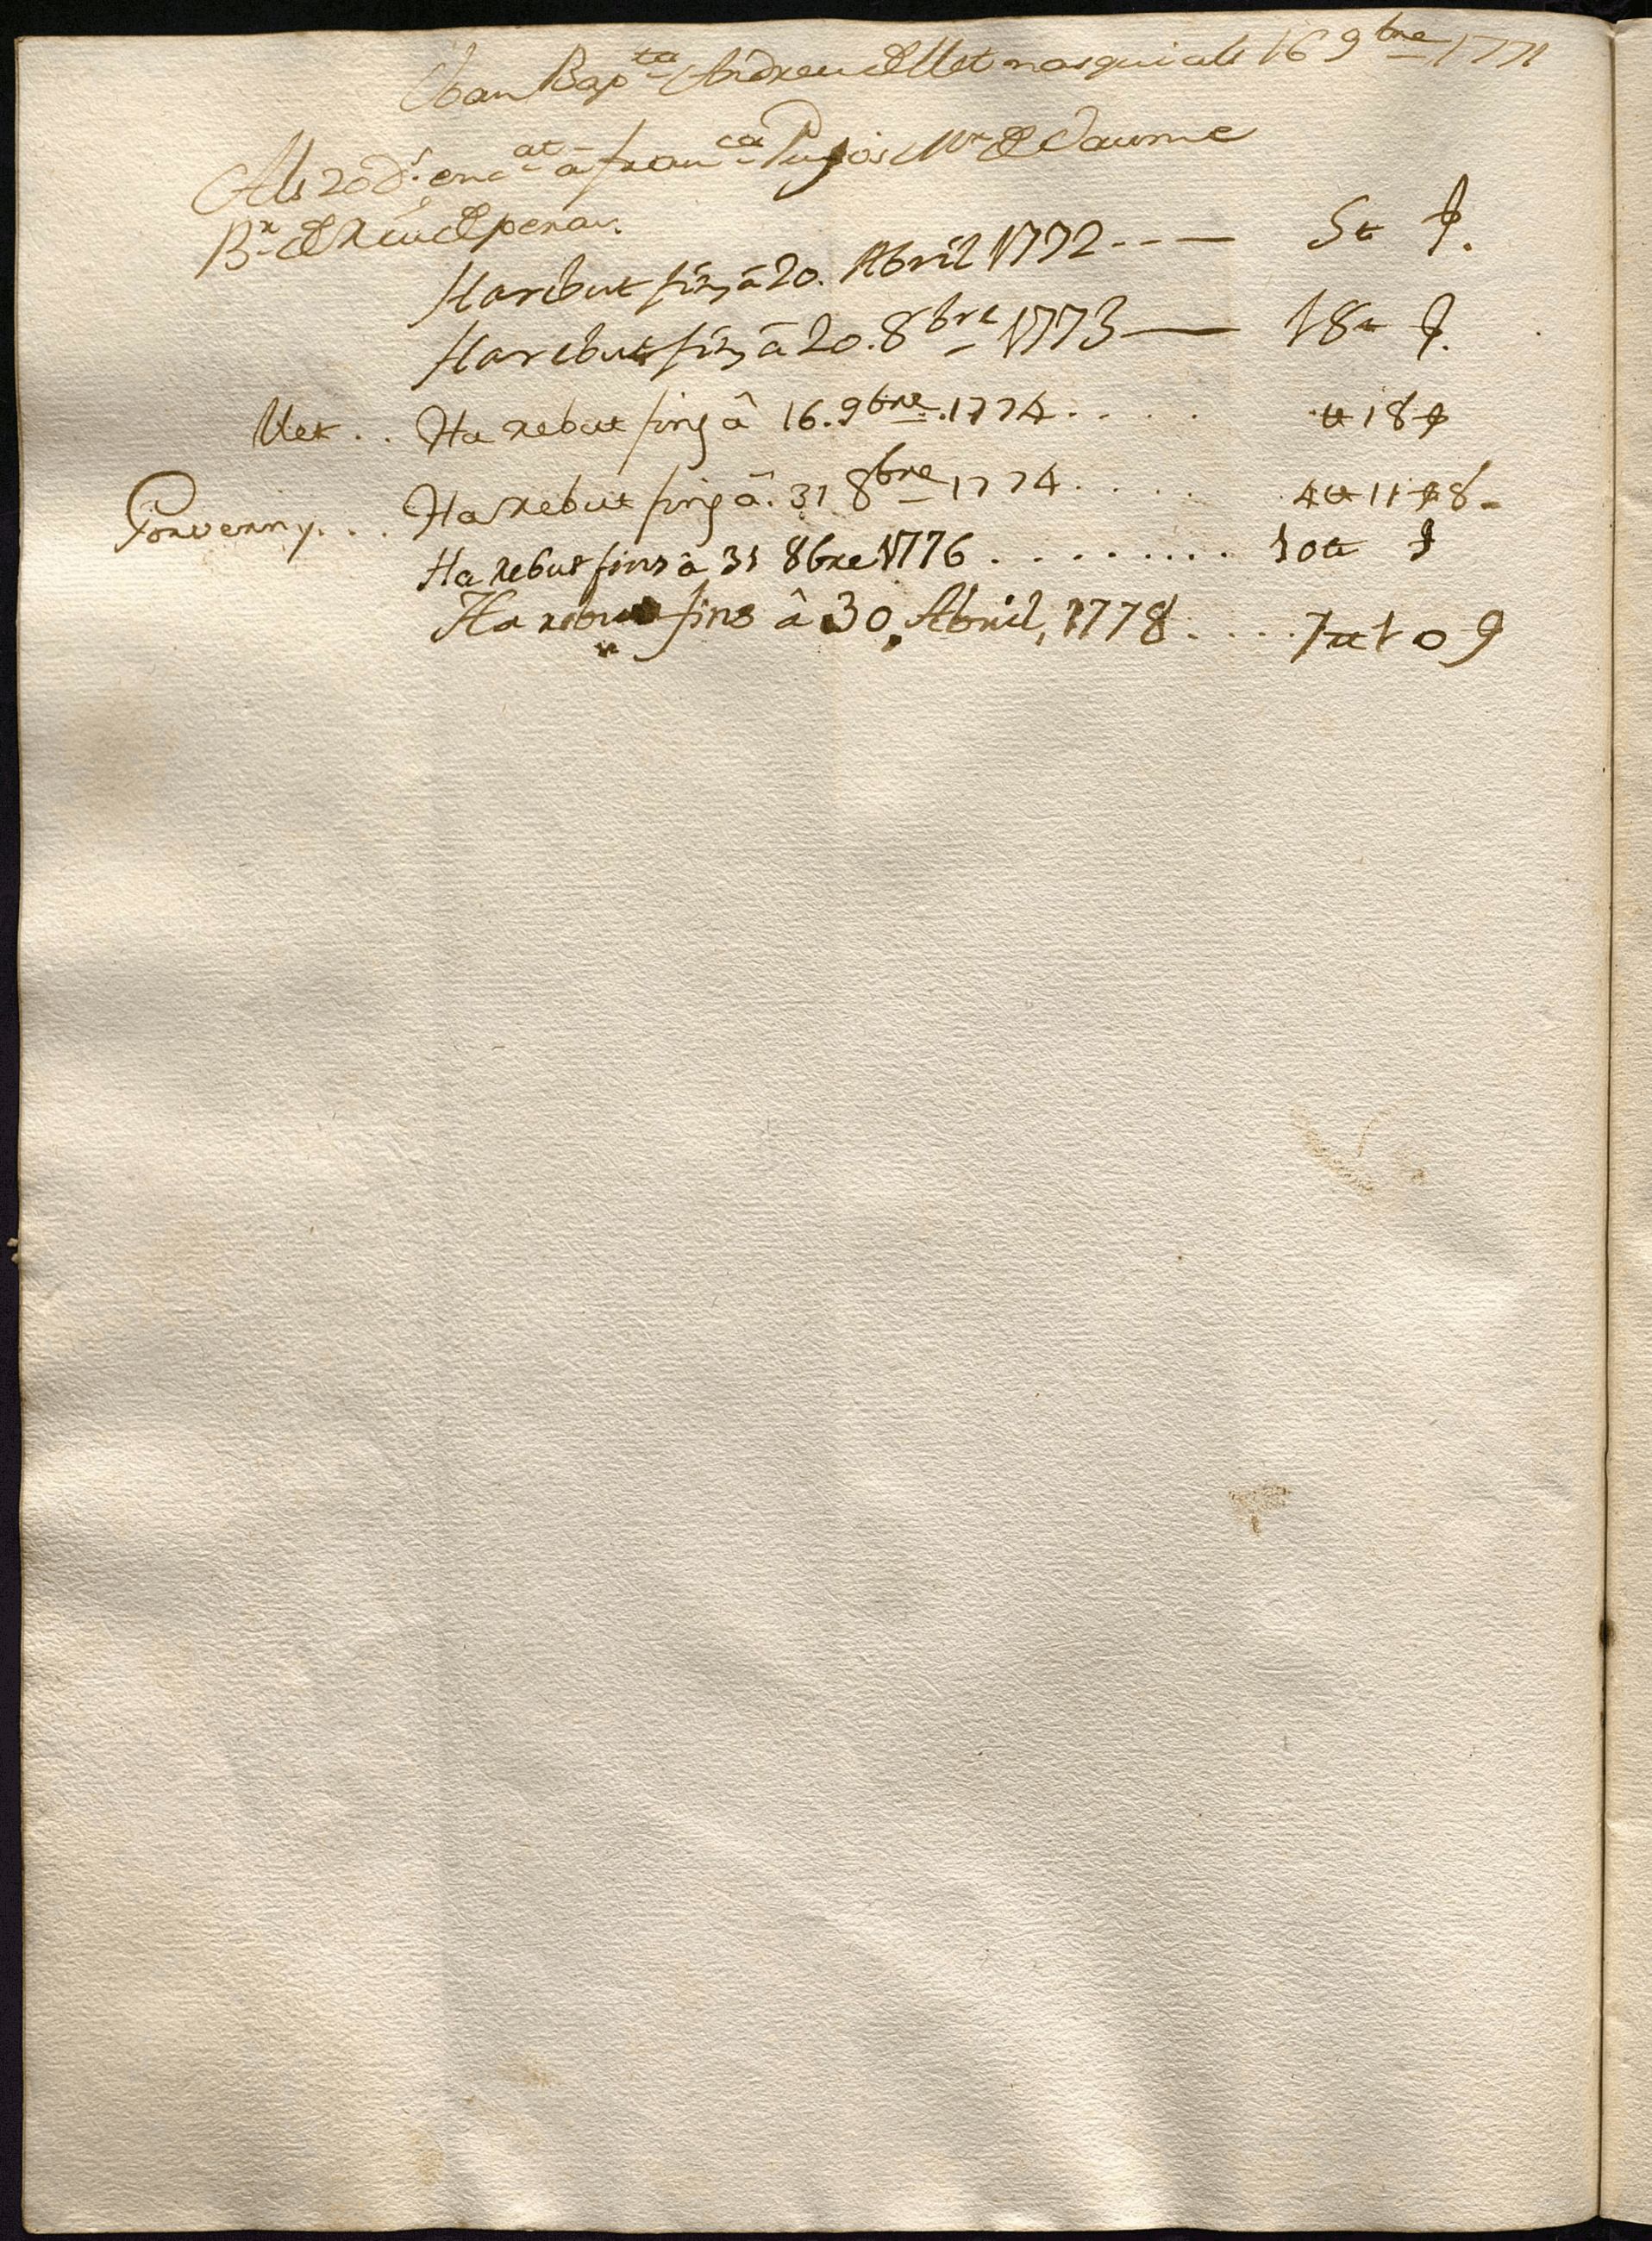 Joan Bap.ta Andreu de llet nasqui als 16 9bre 1771
Als 20 d.s enc.at â fran.ca Pujós M.r de Jaume
B.r de Riudeperas.
Ha rebut fins â 20. Abril 1772 --- 5 tt ₰.
Ha rebut fins â 20. 8bre 1773 — 18 tt ₰.
Net . . Ha rebut fins â 16. 9bre 1774 . . . . tt 18 ₰
Ha rebut fins â. 31 8bre 1774 . . . . . 4 tt 11 ₰ 8.
Ha rebut fins â 31 8bre 1776 . . . . . . . . . 10 tt ₰
Ha rebut fins â 30. Abril, 1778 . . . . 7 tt 10 9